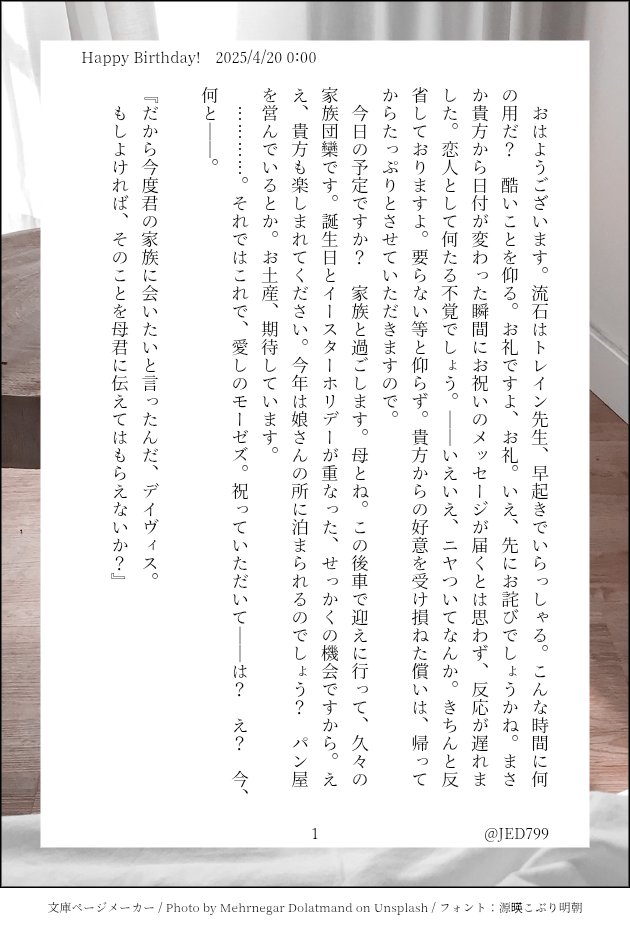 Happy Birthday! 2025/4/20 0:00
　おはようございます。流石はトレイン先生、早起きでいらっしゃる。こんな時間に何
の用だ？　酷いことを仰る。お礼ですよ、お礼。いえ、先にお詫びでしょうかね。まさ
か貴方から日付が変わった瞬間にお祝いのメッセージが届くとは思わず、反応が遅れま
した。恋人として何たる不覚でしょう。――いえいえ、ニヤついてなんか。きちんと反
省しておりますよ。要らない等と仰らず。貴方からの好意を受け損ねた償いは、帰って
からたっぷりとさせていただきますので。
　今日の予定ですか？　家族と過ごします。母とね。この後車で迎えに行って、久々の
家族団欒です。誕生日とイースターホリデーが重なった、せっかくの機会ですから。え
え、貴方も楽しまれてください。今年は娘さんの所に泊まられるのでしょう？　パン屋
を営んでいるとか。お土産、期待しています。
　…………。それではこれで、愛しのモーゼズ。祝っていただいて――は？　え？　今、
何と――。
『だから今度君の家族に会いたいと言ったんだ、デイヴィス。
　もしよければ、そのことを母君に伝えてはもらえないか？』
1
@JED799
文庫ページメーカー / Photo by Mehrnegar Dolatmand on Unsplash / フォント：源暎こぶり明朝